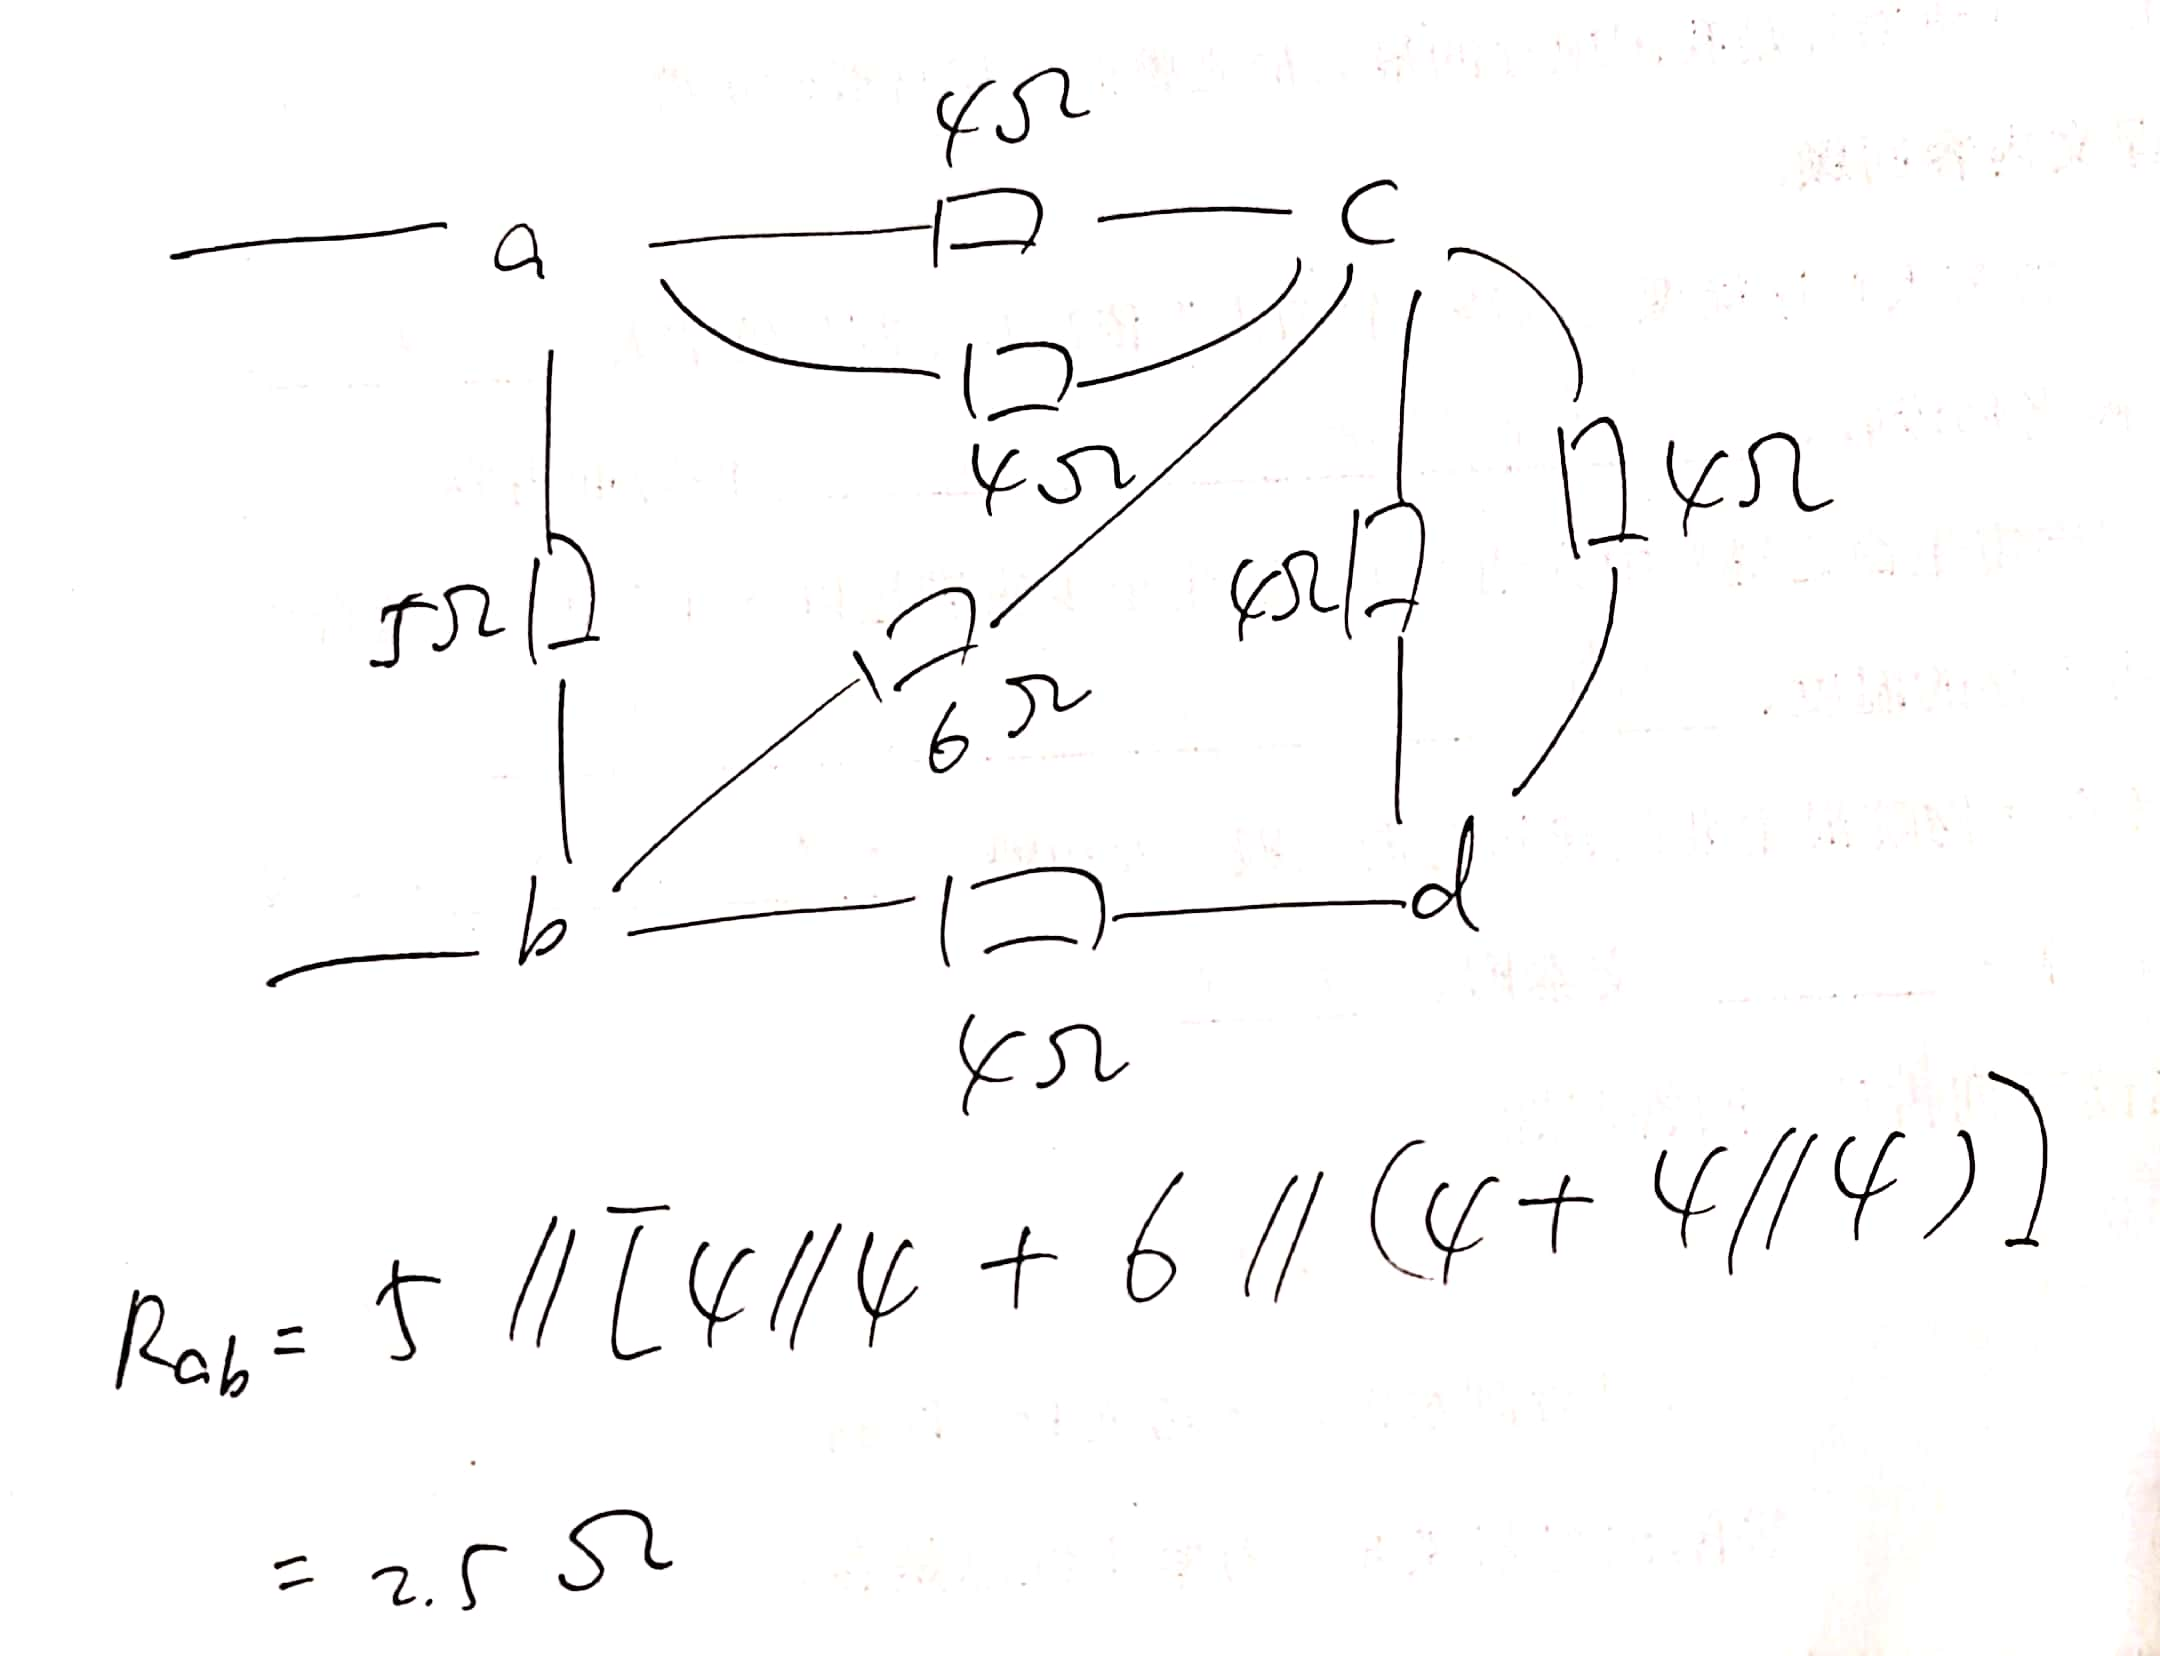 4Ω
a
c
4Ω
4Ω
5Ω
4Ω
6Ω
b
d
4Ω
Rab = 5 // [4//4 + 6 // (4 + 4//4)]
= 2.5 Ω